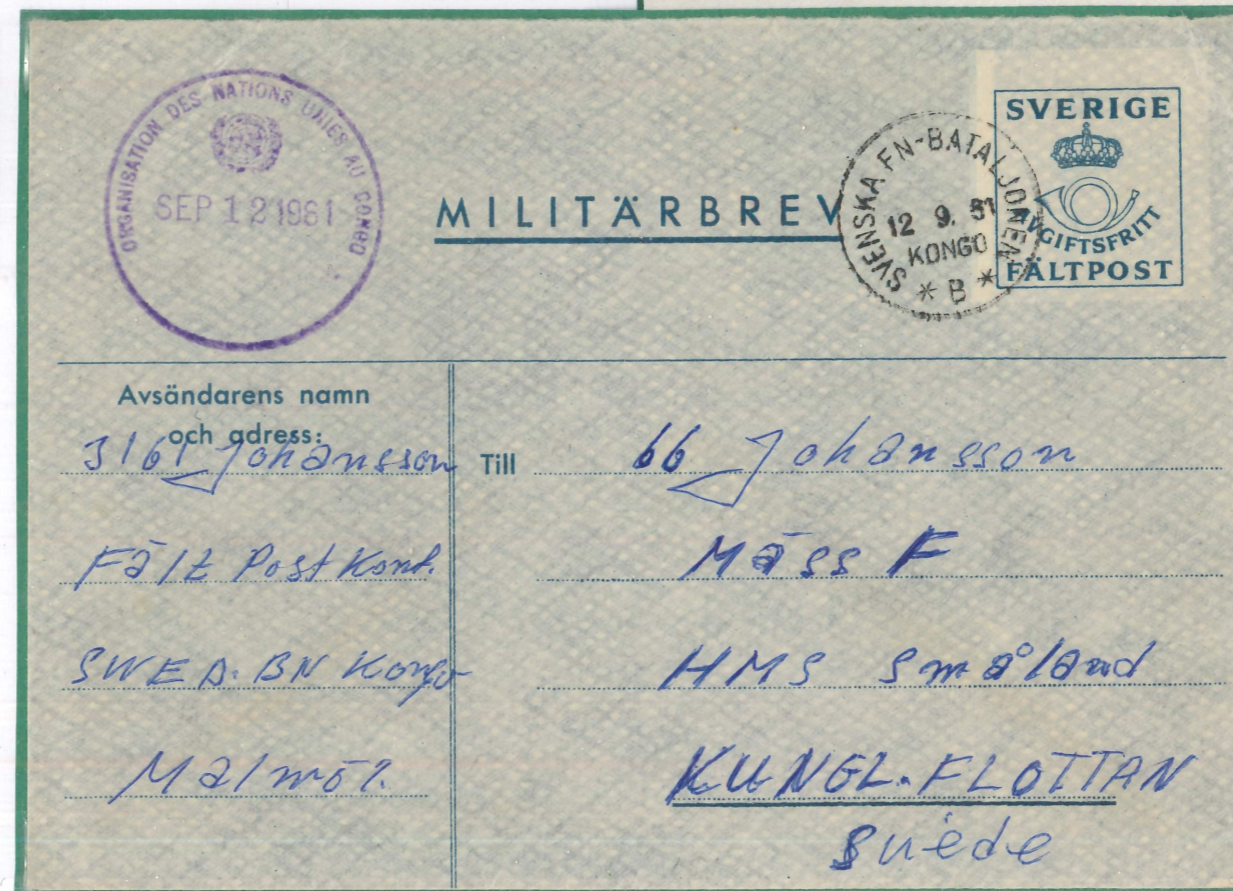 ORGANISATION DES NATIONS UNIES AU CONGO
SEP 12 1961
MILITÄRBREV
SVENSKA FN-BATALJONEN
12 9. 61
KONGO
* B *
SVERIGE
AVGIFTSFRITT
FÄLTPOST
Avsändarens namn
och adress:
3161 Johansson
Fält Post Kont.
SWED. BN Kongo
Malmö 2.
Till 66 Johansson
Mäss F
HMS Småland
KUNGL. FLOTTAN
Suède